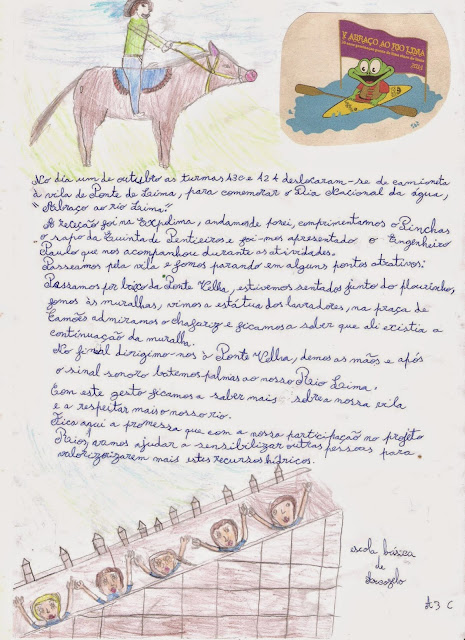 V ABRAÇO AO RIO LIMA
2013
No dia um de outubro as turmas A3C e A24 deslocaram-se de camioneta
à vila de Ponte de Leima, para comemorar o Dia Nacional da água,
"Abraço ao rio Leima."
A receção foi na Expolima, andamos de porei, comprimentamos o Pinchas
o sapo da Quinta de Pentieiros e foi-nos apresentado o Engenheiro
Paulo que nos acompanhou durante as atividades.
Passeamos pela vila e fomos parando em alguns pontos atrativos:
Passamos por baixo da Ponte Velha, estivemos sentados junto do plourinho,
fomos às muralhas, vimos a estátua dos lavradores, na praça de
Camões admiramos o chafariz e ficamos a saber que ali existia a
continuação da muralha.
No final dirigimo-nos à Ponte Velha, demos as mãos e após
o sinal sonoro batemos palmas ao nosso Reio Leima.
Com este gesto ficamos a saber mais sobre a nossa vila
e a respeitar mais o nosso rio.
Fica aqui a promessa que com a nossa participação no projeto
Reios, vamos ajudar a sensibilizar outras pessoas para
valorizorizarem mais estes recursos hídricos.
escola básica
de
Arcozelo
A3 C